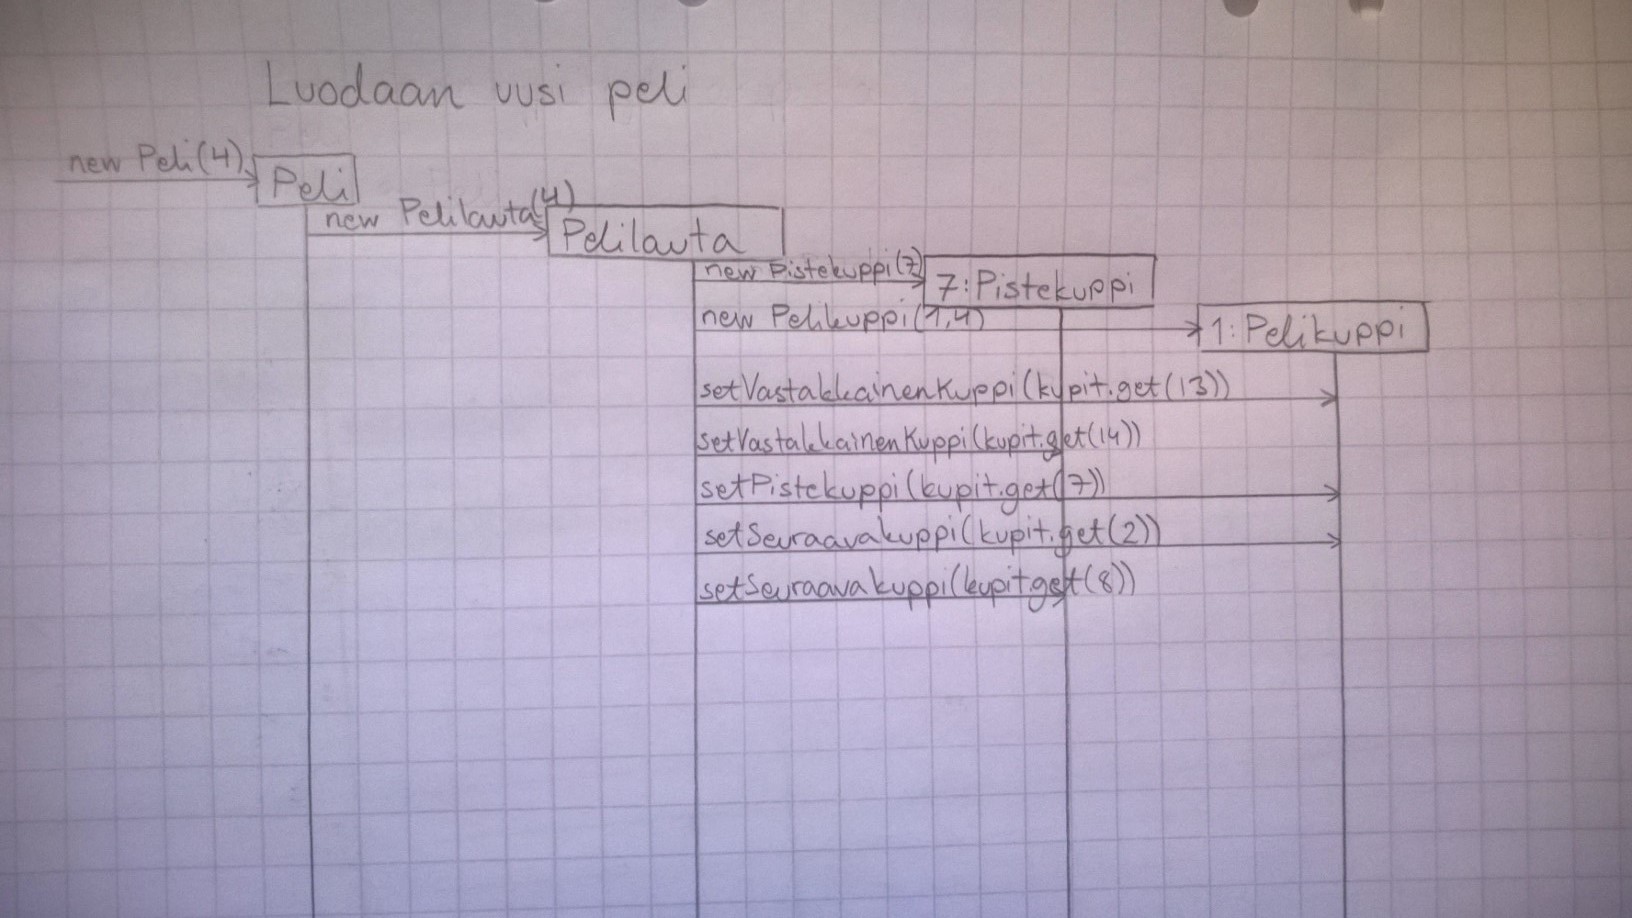 Luodaan uusi peli
new Peli(4)
Peli
new Pelilauta(4)
Pelilauta
new Pistekuppi(7)
7:Pistekuppi
new Pelikuppi(1,4)
1:Pelikuppi
setVastakkainenKuppi(kupit.get(13))
setVastakkainenKuppi(kupit.get(14))
setPistekuppi(kupit.get(7))
setSeuraavakuppi(kupit.get(2))
setSeuraavakuppi(kupit.get(8))